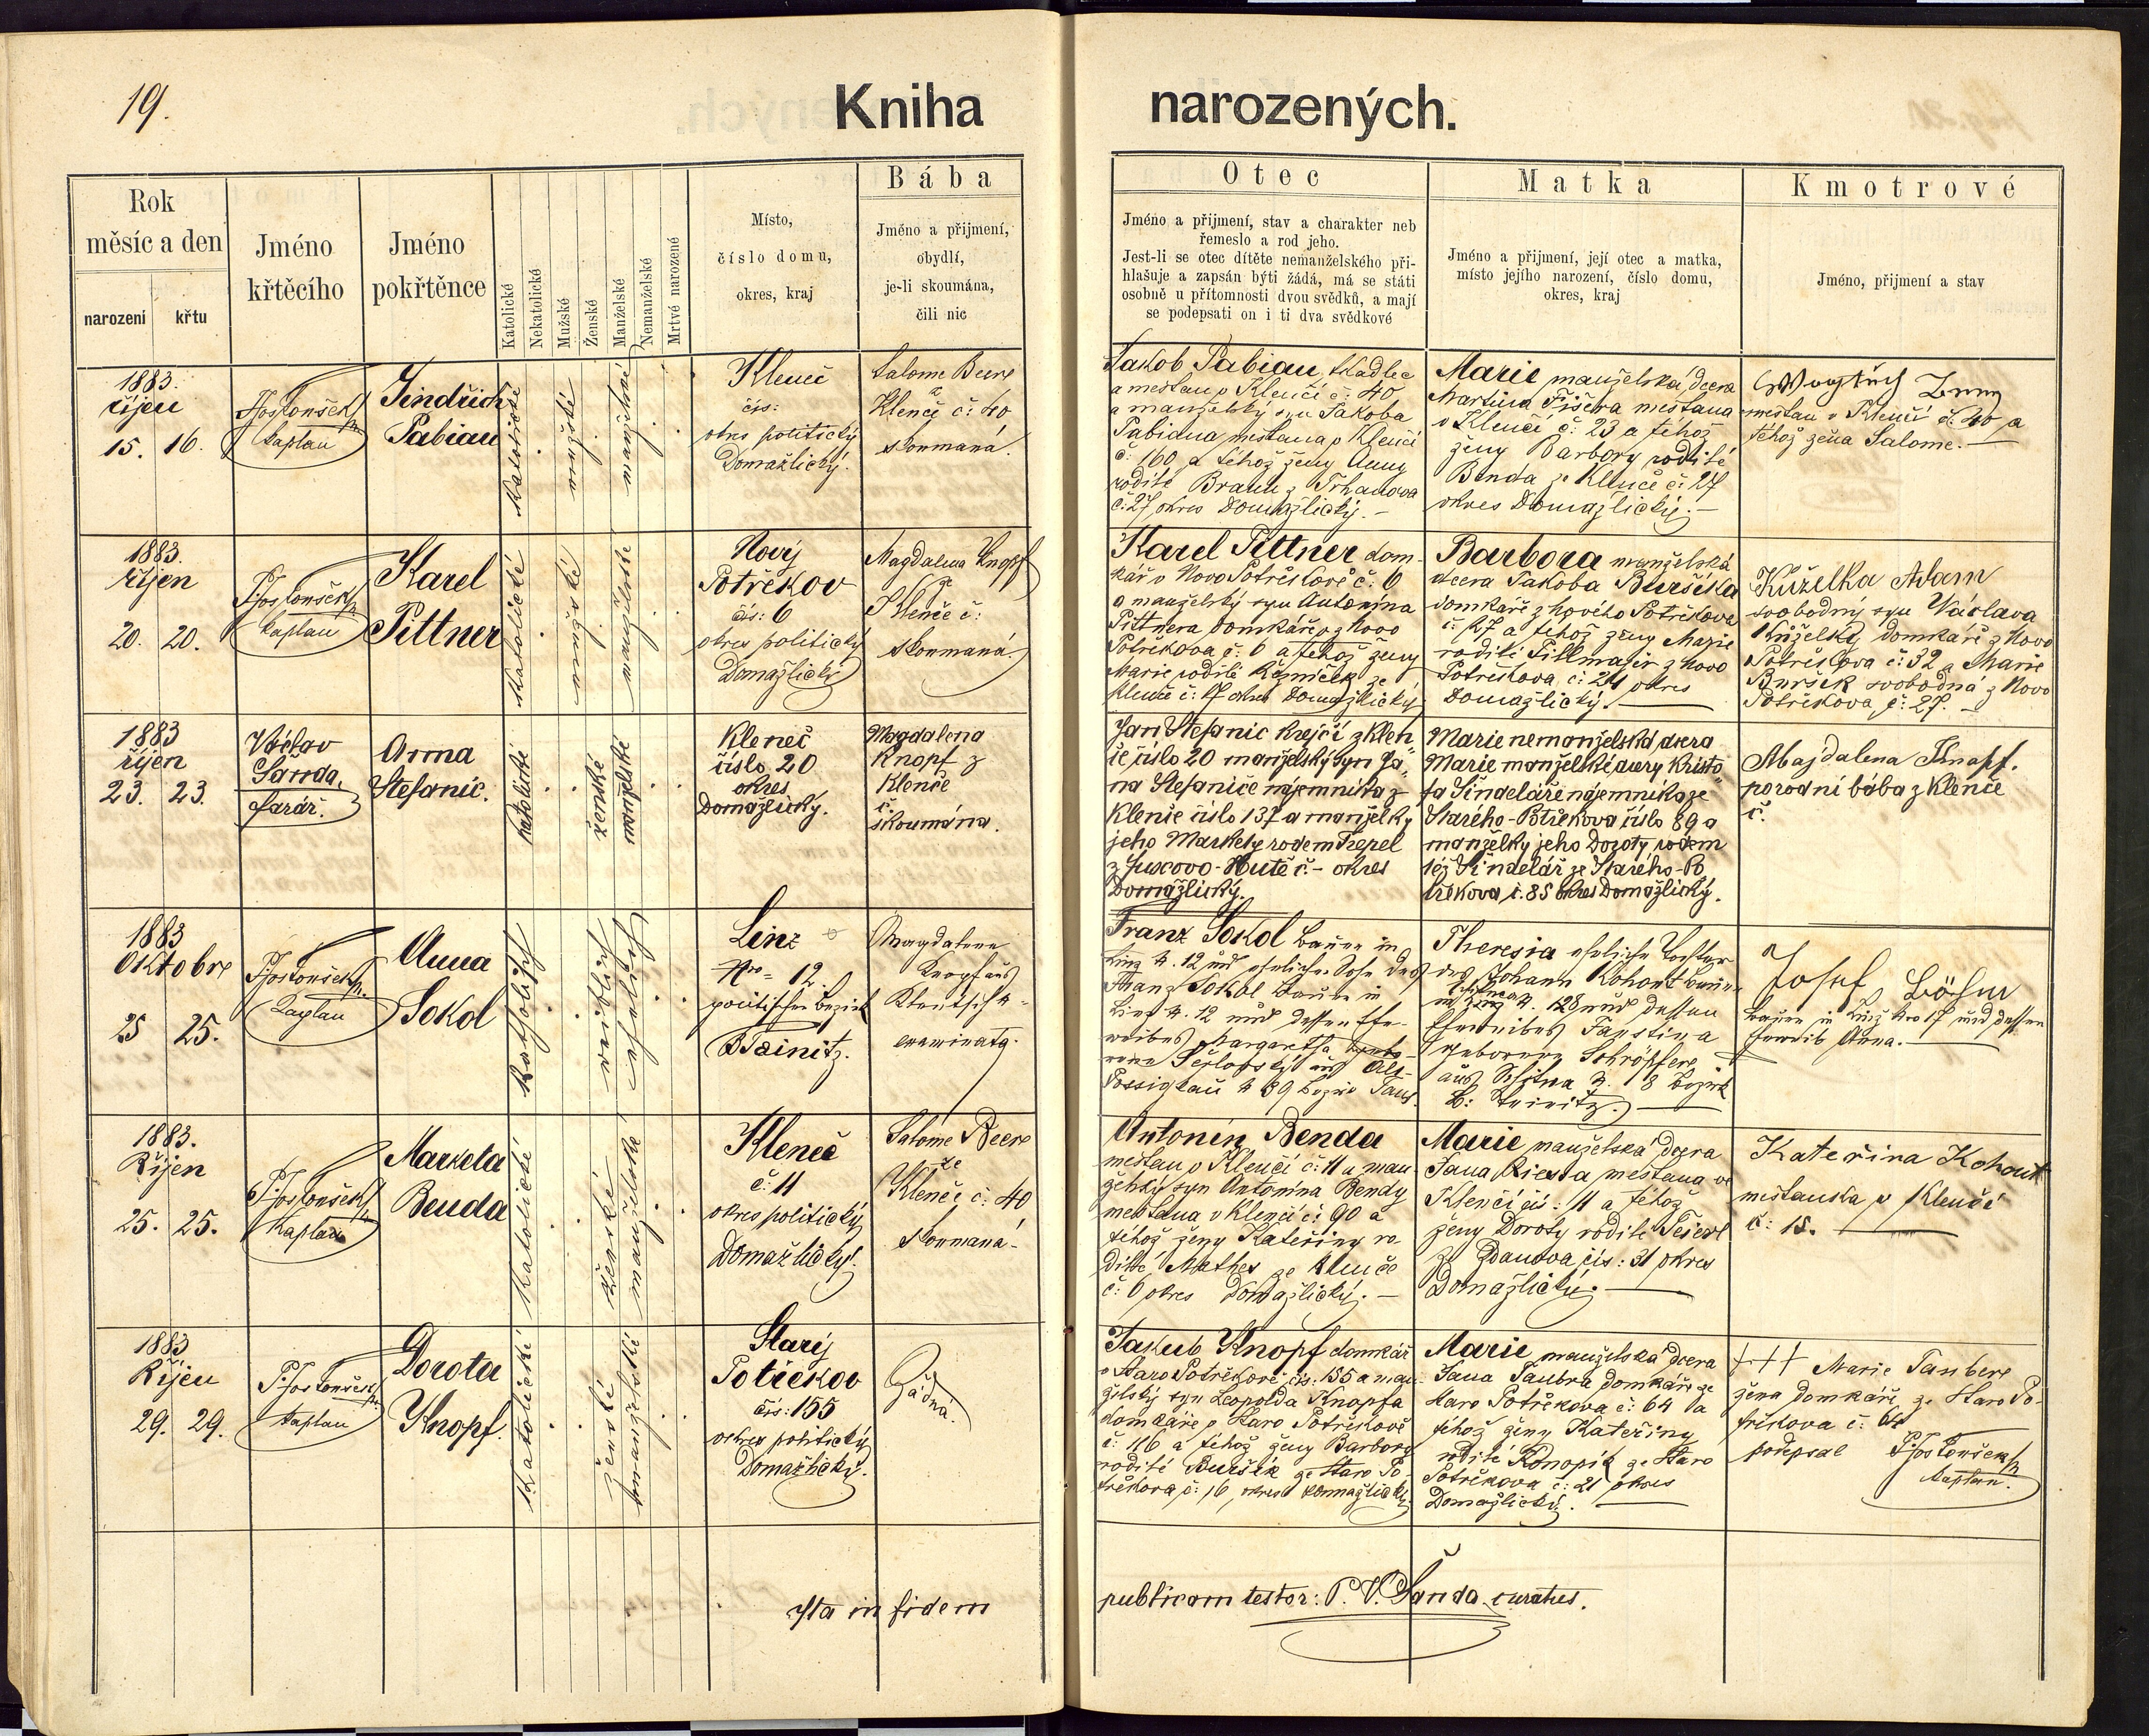 19.
Kniha narozených.
Rok
měsíc a den
narození
křtu
Jméno
křtěcího
Jméno
pokřtěnce
Katolické
Nekatolické
Mužské
Ženské
Manželské
Nemanželské
Mrtvé narozené
Místo,
číslo domu,
okres, kraj
Bába
Jméno a přijmení,
obydlí,
je-li skoumána,
čili nic
Otec
Jméno a přijmení, stav a charakter neb
řemeslo a rod jeho.
Jest-li se otec dítěte nemanželského při-
hlašuje a zapsán býti žádá, má se státi
osobně u přítomnosti dvou svědků, a mají
se podepsati on i ti dva svědkové
Matka
Jméno a přijmení, její otec a matka,
místo jejího narození, číslo domu,
okres, kraj
Kmotrové
Jméno, přijmení a stav
1883.
říjen
15. 16.
kaplan
Jindřich
Pabian
katolické
mužské
manželské
Kleneč
čís:
okres politický
Domažlický.
Salome Beere
z
Klenče č: 40
skoumaná.
Jakob Pabian, tkadlec
a mešťan v Klenčí č: 40
a manželský syn Jakoba
Pabiana mešťana v Klenčí
č: 160 a téhož ženy Anny
rodilé Braun z Trhanova
č: 27, okres Domažlický. —
Marie manželská dcera
Martina Fišera mešťana
v Klenčí č: 23 a téhož
ženy Barbory rodilé
Benda ze Klenče č: 27
okres Domažlický. —
mešťan v Klenčí č: 40 a
téhož žena Salome. —
1883.
říjen
20. 20.
kaplan
Karel
Pittner
katolické
mužské
manželské
Nový
Potřekov
čís: 6
okres politický
Domažlický
Magdalena Knopf
ze
Klenče č:
skoumaná.
Karel Pittner dom-
kář v Novo Potřekově č: 6
a manželský syn Antonína
Pittnera domkáře z Novo
Potřekova č: 6 a téhož ženy
Marie rodilé Řezníček ze
Klenče č: 17 okres Domažlický
Barbora manželská
dcera Jakoba Buršíka
domkáře z Nového Potřekova
č: 27 a téhož ženy Marie
rodilé Tillmajer z Novo
Potřekova č: 24 okres
Domažlický.
Kuželka Adam
svobodný syn Václava
Kuželky domkáře z Novo
Potřekova č: 32 a Marie
Buršík svobodná z Novo
Potřekova č: 27. —
1883
říjen
23. 23.
Václav
Šanda,
farář.
Anna
Stefanic.
katolické
ženské
manželské
Kleneč
číslo 20
okres
Domažlický.
Magdalena
Knopf z
Klenče
č.
skoumána.
Jan Stefanic krejčí z Klen
če číslo 20 manželský syn Ja
na Stefaniče nájemníka z
Klenče číslo 137 a manželky
jeho Markety rodem Trepel
z Fuxovo-Hutě č. - okres
Domažlický.
Marie nemanželská dcera
Marie manželské dcery Kristo
fa Šindeláře nájemníka ze
Starého-Potřekova číslo 89 a
manželky jeho Doroty rodem
též Šindelář ze Starého-Po
třekova č. 85 okres Domažlický.
Majdalena Knopf.
porodní bába z Klenče
č.
1883
Oktobre
25 25.
Kaplan
Anna
Sokol
katholisch
weiblich
ehelich
Linz
Nro = 12.
politischer Bezirk
BTeinitz.
Magdalena
Knopf aus
Klentsch №
examinata.
Franz Sokol Bauer in
Linz № 12 und ehelicher Sohn des
Franz Sokol Bauer in
Linz № 12 und dessen Ehe-
weibes Margaretha
Possigkau № 89 Bezirk Taus.
Theresia eheliche Tochter
des Johann Kohout Bauer
128 und dessen
Eheweibes Faustina
geborene Schröpfere
18 Bezirk
B: Teinitz. —
Josef Böhm
Bauer in Linz Nro 17 und dessen
Eheweib Anna. —
1883.
Říjen
25. 25.
Kaplan
Marketa
Benda
katolické
ženské
manželské
Kleneč
č: 11
okres politický
Domažlický.
Salome Beere
ze
Klenče č: 40
skoumaná -
Antonín Benda
mešťan v Klenčí č: 11 a man
želský syn Antonína Bendy
mešťana v Klenčí č: 90 a
téhož ženy Kateřiny ro
dilé Mathes ze Klenče
č: 6 okres Domažlický. —
Marie manželská dcera
Jana mešťana ve
Klenčí čís: 11 a téhož
ženy Doroty rodilé
ze Ždanova čís: 31 okres
Domažlický. —
Kateřina Kohout
mešťanka v Klenčí
č: 15. —
1883
Říjen
29. 29.
kaplan
Dorota
Knopf.
katolické
ženské
manželské
Starý
Potřekov
čís: 155
okres politický
Domažlický.
Žádná.
Jakub Knopf domkář
v Staro Potřekově čís: 155 a man-
želský syn Leopolda Knopfa
domkáře v Staro Potřekově
č: 116 a téhož ženy Barbory
rodilé Buršík ze Staro Po-
třekova č: 16, okres Domažlický
Marie manželská dcera
Jana Taubra domkáře ze
Staro Potřekova č: 64 a
téhož ženy Kateřiny
rodilé Konopík ze Staro
Potřekova č: 21 okres
Domažlický. —
+++ Marie Taubere
žena domkáře ze Staro Po-
třekova č: 64
podepsal
kaplan.
Ita in fidem publicam testor: P. V. Šanda, curatus.